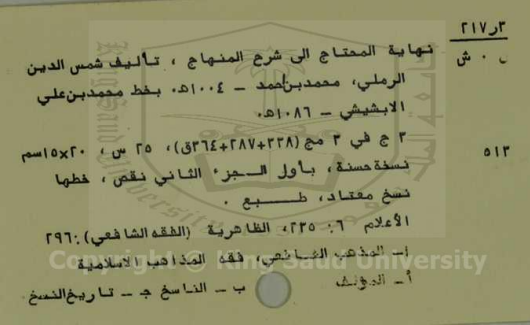 ٢١٧٫٣
ن ٠ ش
نهاية المحتاج الى شرح المنهاج ، تأليف شمس الدين
الرملي، محمد بن أحمد – ١٠٠٤هـ. بخط محمد بن علي
الابشيشي – ١٠٨٦هـ.
٣ ج في ٣ مج (٣٣٨+٢٨٧+٣٦٤ق)، ٢٥ س ، ٢٠×١٥سم
٥١٣
نسخة حسنة ، بأول الجزء الثاني نقص ، خطها
نسخ معتاد، طبع .
الأعلام ٦: ٢٣٥، الظاهرية (الفقه الشافعي): ٢٩٦
أ- المذهب الشافعي، فقه المذاهب الاسلامية
أ- المؤلف ب - الناسخ ج - تاريخ النسخ
Copyright © King Saud University